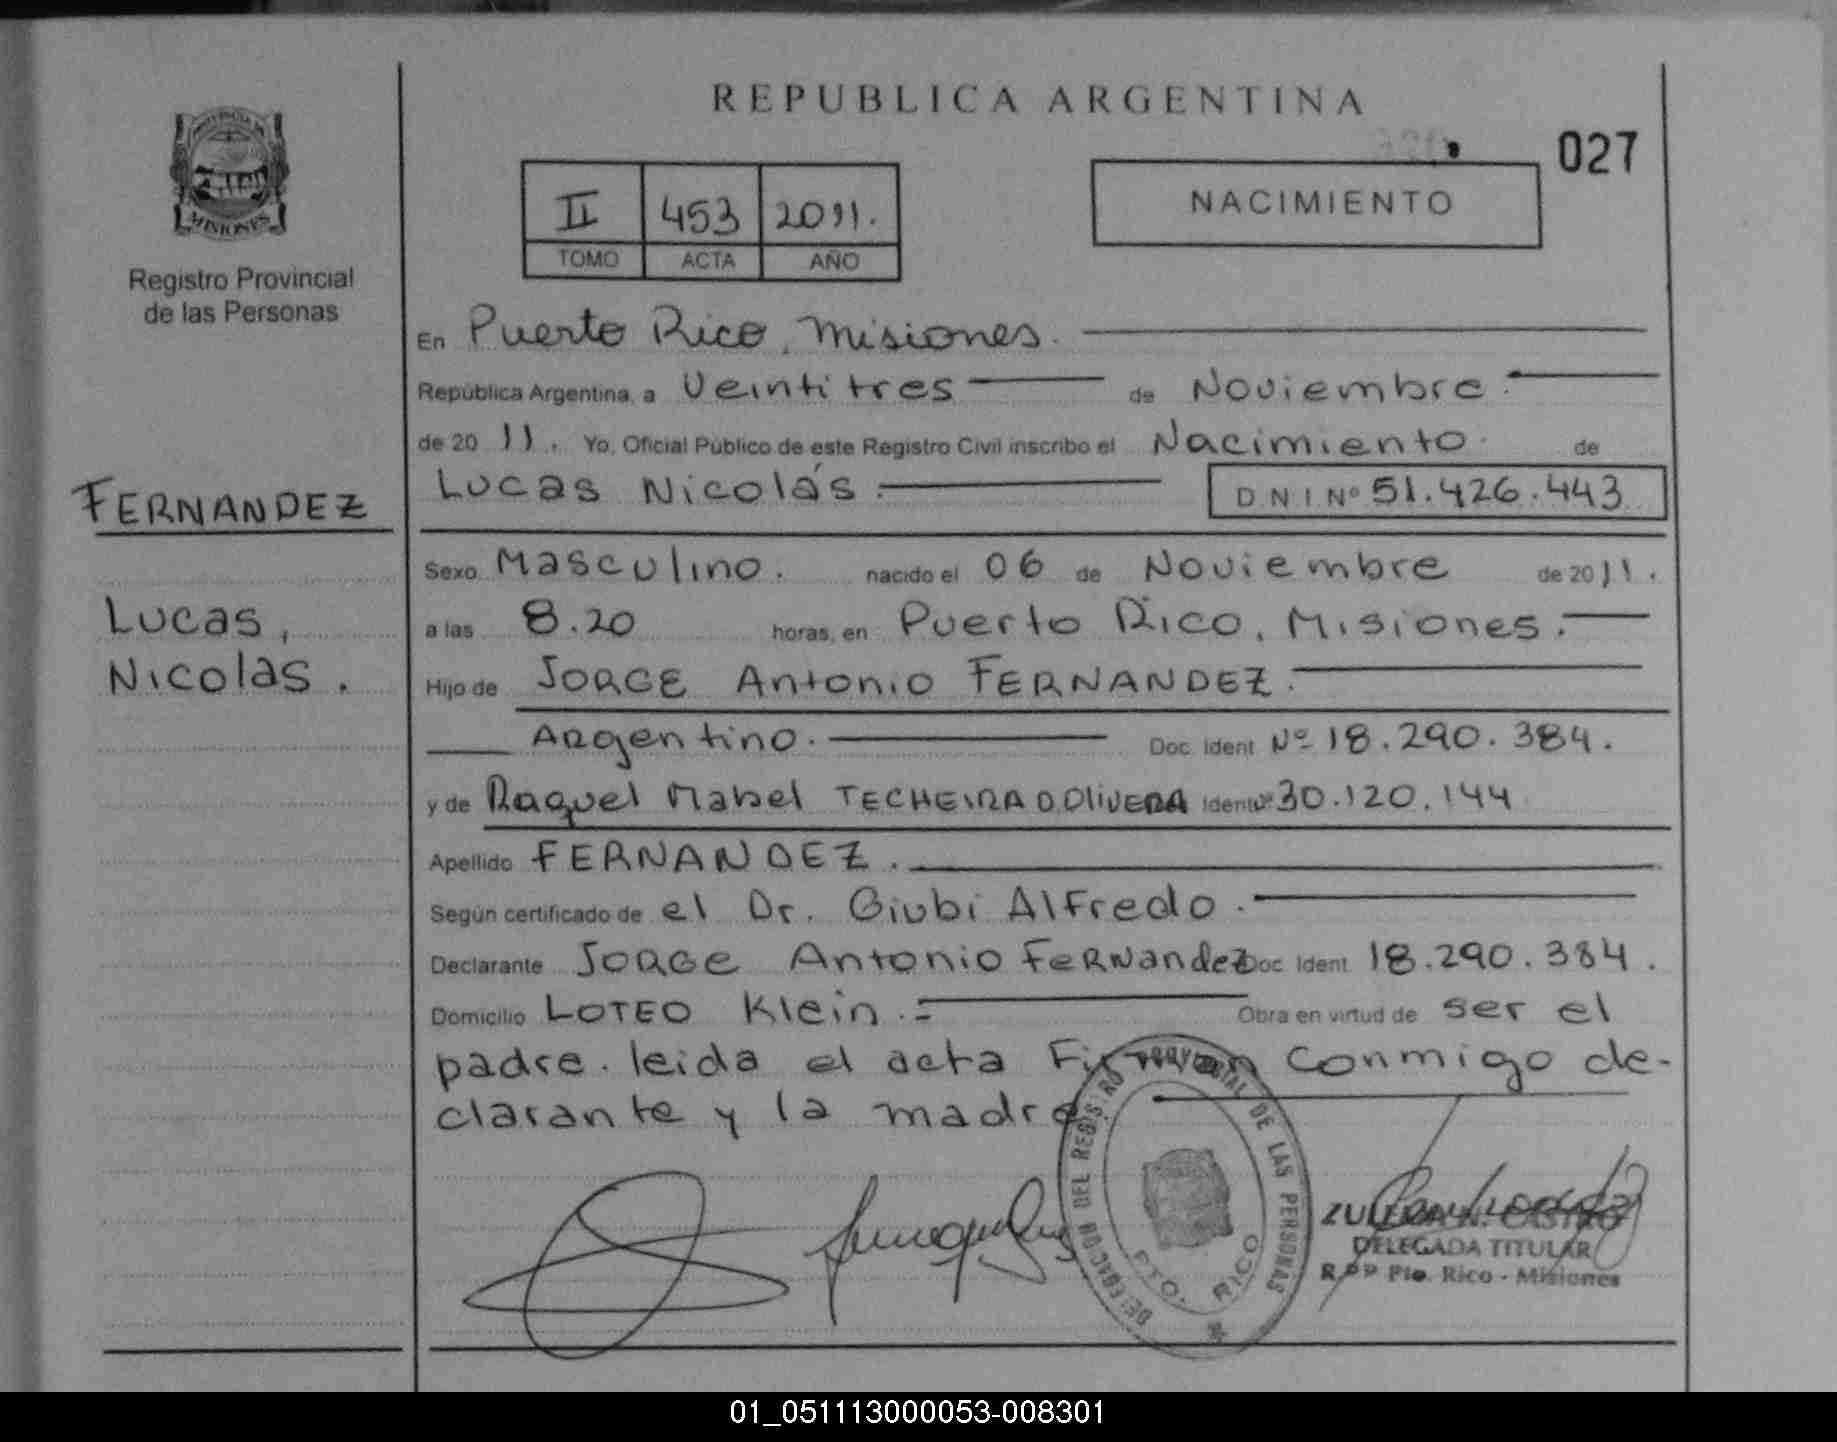 REPUBLICA ARGENTINA
027
PROVINCIA DE
MISIONES
Registro Provincial
de las Personas
II 453 2011.
TOMO ACTA AÑO
NACIMIENTO
En Puerto Rico, Misiones.
República Argentina, a Veintitres de Noviembre.
de 20 11. Yo, Oficial Público de este Registro Civil inscribo el Nacimiento de
Lucas Nicolás. D N I Nº 51.426.443
FERNANDEZ
Lucas,
Nicolas.
Sexo Masculino. nacido el 06 de Noviembre de 20 11.
a las 8.20 horas, en Puerto Rico, Misiones.
Hijo de JORGE Antonio FERNANDEZ.
Argentino. Doc. Ident Nº 18.290.384.
y de Raquel Mabel TECHEIRA D OLIVERA Ident Nº 30.120.144
Apellido FERNANDEZ.
Según certificado de el Dr. Giubi Alfredo.
Declarante JORGE Antonio Fernandez Doc Ident 18.290.384.
Domicilio LOTEO Klein. Obra en virtud de ser el
padre. leida el acta Firman conmigo de-
clarante y la madre
DELEGACION DEL REGISTRO PROVINCIAL DE LAS PERSONAS
PTO. RICO
CASTRO
DELEGADA TITULAR
R.P.P Pto. Rico - Misiones
01_051113000053-008301